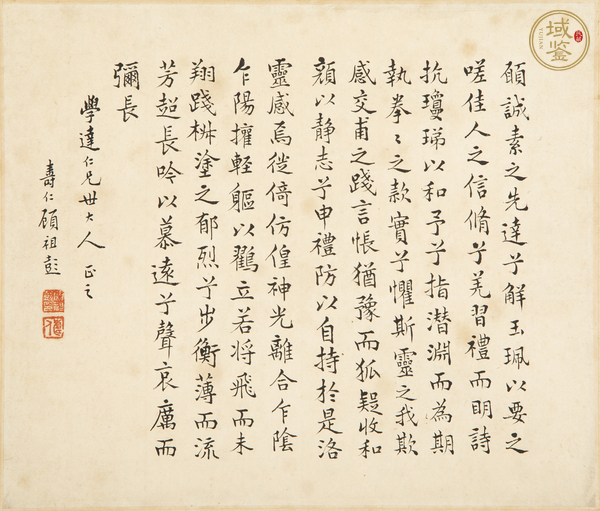 願誠素之先達兮解玉珮以要之
嗟佳人之信脩兮羌習禮而明詩
抗瓊珶以和予兮指潛淵而為期
執拳〻之款實兮懼斯靈之我欺
感交甫之踐言悵猶豫而狐疑收和
顏以静志兮申禮防以自持於是洛
靈感焉徙倚仿偟神光離合乍陰
乍陽擢軽軀以鸖立若将飛而未
翔踐椒塗之郁烈兮步衡薄而流
芳超長吟以慕遠兮聲哀厲而
彌長
學達仁兄世大人 正之
壽仁顧祖彭
域鉴
YUJIAN